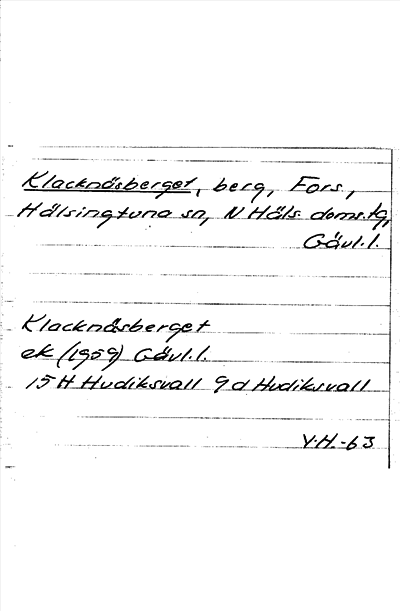 Klacknäsberget, berg, Fors,
Hälsingtuna sn, N Häls. doms.tg,
Gävl.l.
Klacknäsberget
ek (1959) Gävl.l.
15H Hudiksvall 9d Hudiksvall
V.H.-63